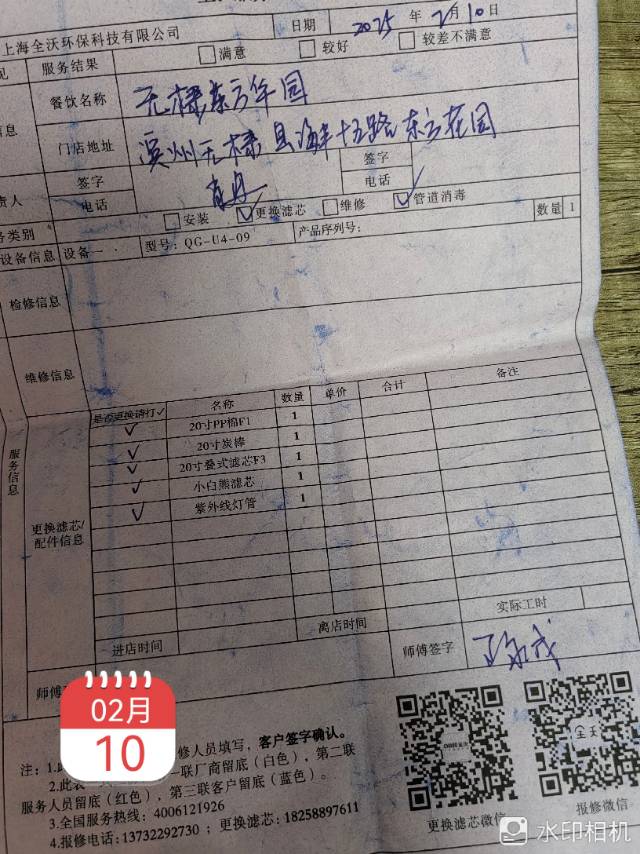 上海全沃环保科技有限公司
日期 2025 年 2 月 10 日
服务结果 满意 较好 较差不满意
餐饮名称 无棣东方华园
门店地址 滨州无棣县海丰十五路东方花园
签字 签字
电话 电话
安装 ✓更换滤芯 维修 ✓管道消毒
设备信息 设备一 型号: QG-U4-09 产品序列号: 数量 1
检修信息
维修信息
服务信息
更换滤芯/配件信息
是否更换请打✓ 名称 数量 单价 合计 备注
✓ 20寸PP棉F1 1
✓ 20寸炭棒 1
✓ 20寸叠式滤芯F3 1
✓ 小白熊滤芯 1
✓ 紫外线灯管 1
进店时间 离店时间 实际工时
师傅签字
02月
10
修人员填写,客户签字确认。
注:1.
2.此表 一联厂商留底(白色),第二联
服务人员留底(红色),第三联客户留底(蓝色)。
3.全国服务热线:4006121926
4.报修电话:13732292730;更换滤芯:18258897611
更换滤芯微信 报修微信
水印相机